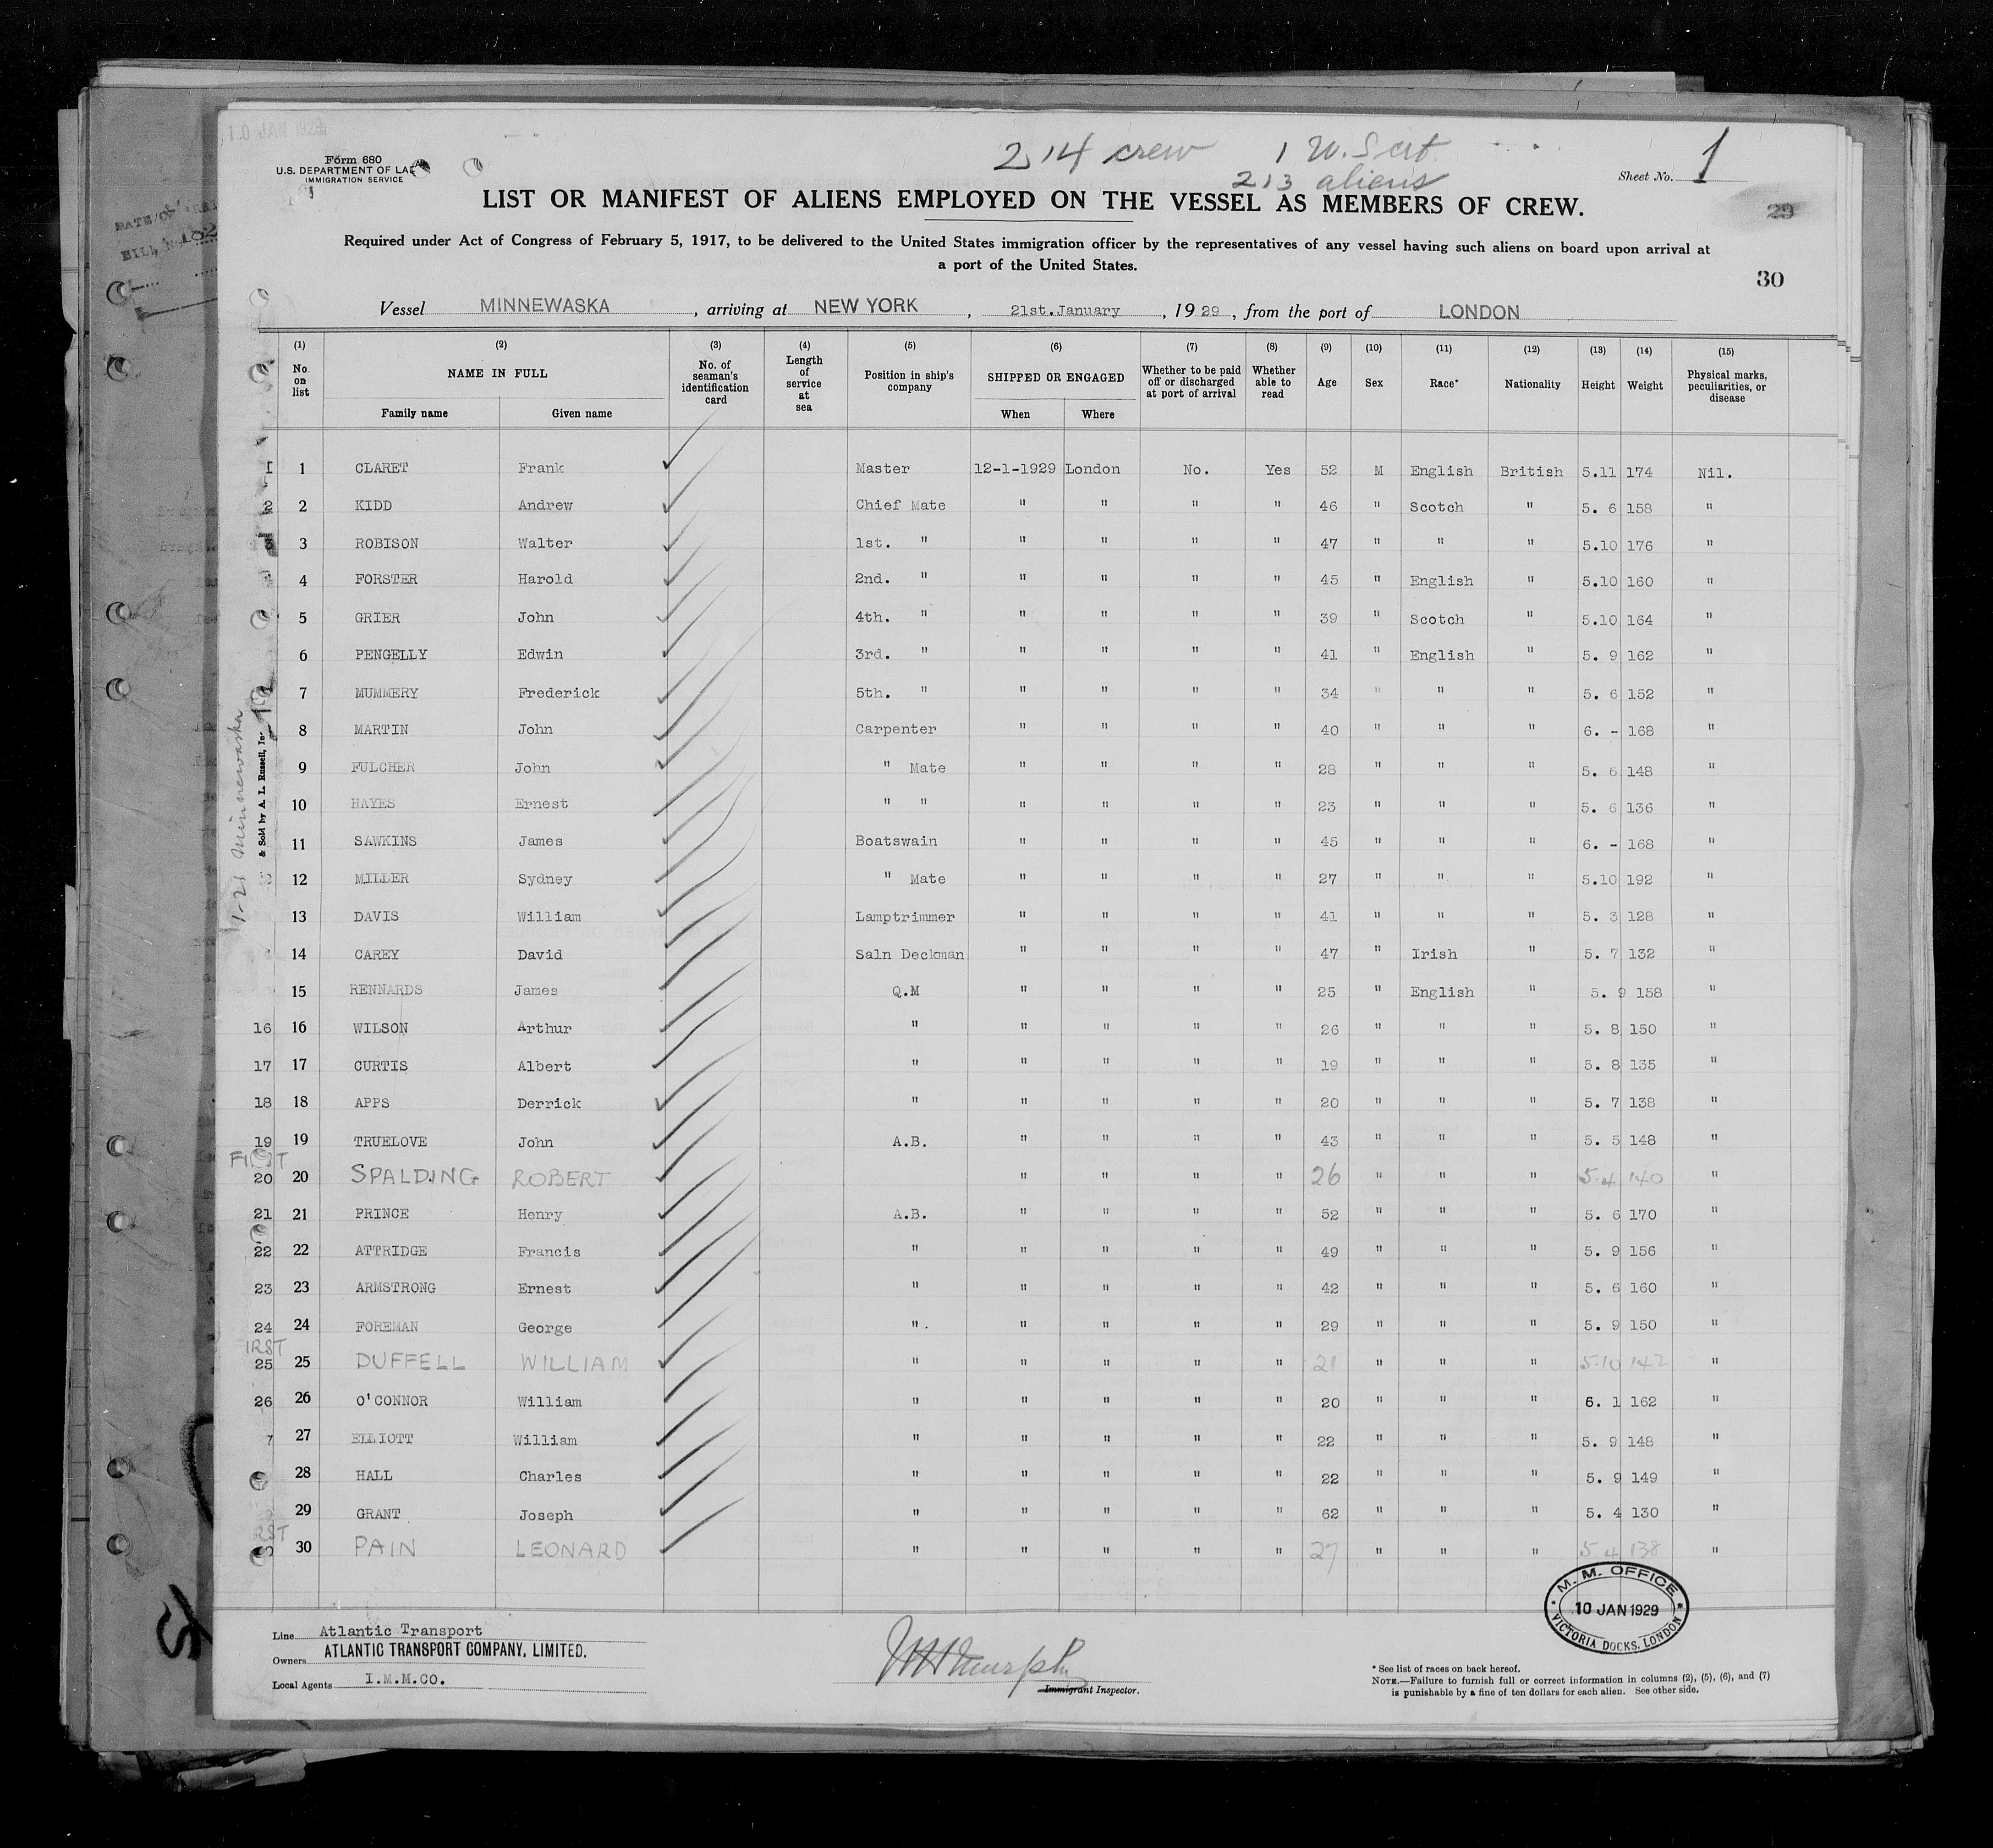 10 JAN 1929
Form 680
U.S. DEPARTMENT OF LA
IMMIGRATION SERVICE
214 crew 1 U.S cit
213 aliens
Sheet No. 1
LIST OR MANIFEST OF ALIENS EMPLOYED ON THE VESSEL AS MEMBERS OF CREW.
29
Required under Act of Congress of February 5, 1917, to be delivered to the United States immigration officer by the representatives of any vessel having such aliens on board upon arrival at
a port of the United States.
30
Vessel MINNEWASKA, arriving at NEW YORK, 21st.January, 1929, from the port of LONDON
(1) (2) (3) (4) (5) (6) (7) (8) (9) (10) (11) (12) (13) (14) (15)
No. on list NAME IN FULL No. of seaman's identification card Length of service at sea Position in ship's company SHIPPED OR ENGAGED Whether to be paid off or discharged at port of arrival Whether able to read Age Sex Race* Nationality Height Weight Physical marks, peculiarities, or disease
Family name Given name When Where
1 1 CLARET Frank Master 12-1-1929 London No. Yes 52 M English British 5.11 174 Nil.
2 2 KIDD Andrew Chief Mate " " " " 46 " Scotch " 5. 6 158 "
3 3 ROBISON Walter 1st. " " " " " 47 " " " 5.10 176 "
4 FORSTER Harold 2nd. " " " " " 45 " English " 5.10 160 "
5 GRIER John 4th. " " " " " 39 " Scotch " 5.10 164 "
6 PENGELLY Edwin 3rd. " " " " " 41 " English " 5. 9 162 "
7 MUMMERY Frederick 5th. " " " " " 34 " " " 5. 6 152 "
8 MARTIN John Carpenter " " " " 40 " " " 6. - 168 "
9 FULCHER John " Mate " " " " 28 " " " 5. 6 148 "
10 HAYES Ernest " " " " " " 23 " " " 5. 6 136 "
11 SAWKINS James Boatswain " " " " 45 " " " 6. - 168 "
12 MILLER Sydney " Mate " " " " 27 " " " 5.10 192 "
13 DAVIS William Lamptrimmer " " " " 41 " " " 5. 3 128 "
14 CAREY David Saln Deckman " " " " 47 " Irish " 5. 7 132 "
15 RENNARDS James Q.M " " " " 25 " English " 5. 9 158 "
16 16 WILSON Arthur " " " " " 26 " " " 5. 8 150 "
17 17 CURTIS Albert " " " " " 19 " " " 5. 8 135 "
18 18 APPS Derrick " " " " " 20 " " " 5. 7 138 "
19 19 TRUELOVE John A.B. " " " " 43 " " " 5. 5 148 "
FIRST
20 20 SPALDING ROBERT " " " " 26 " " " 5.4 140 "
21 21 PRINCE Henry A.B. " " " " 52 " " " 5. 6 170 "
22 22 ATTRIDGE Francis " " " " " 49 " " " 5. 9 156 "
23 23 ARMSTRONG Ernest " " " " " 42 " " " 5. 6 160 "
24 24 FOREMAN George " " " " " 29 " " " 5. 9 150 "
IRST
25 25 DUFFELL WILLIAM " " " " " 21 " " " 5.10 142 "
26 26 O'CONNOR William " " " " " 20 " " " 6. 1 162 "
7 27 ELLIOTT William " " " " " 22 " " " 5. 9 148 "
28 HALL Charles " " " " " 22 " " " 5. 9 149 "
29 GRANT Joseph " " " " " 62 " " " 5. 4 130 "
RST
30 PAIN LEONARD " " " " " 27 " " " 5 4 138 "
1-21 Minnewaska
& Sold by A. L. Russell, Inc
M. M. OFFICE
10 JAN 1929
VICTORIA DOCKS, LONDON
Line Atlantic Transport
Owners ATLANTIC TRANSPORT COMPANY, LIMITED.
Local Agents I.M.M.CO.
Immigrant Inspector.
* See list of races on back hereof.
NOTE.—Failure to furnish full or correct information in columns (2), (5), (6), and (7)
is punishable by a fine of ten dollars for each alien. See other side.